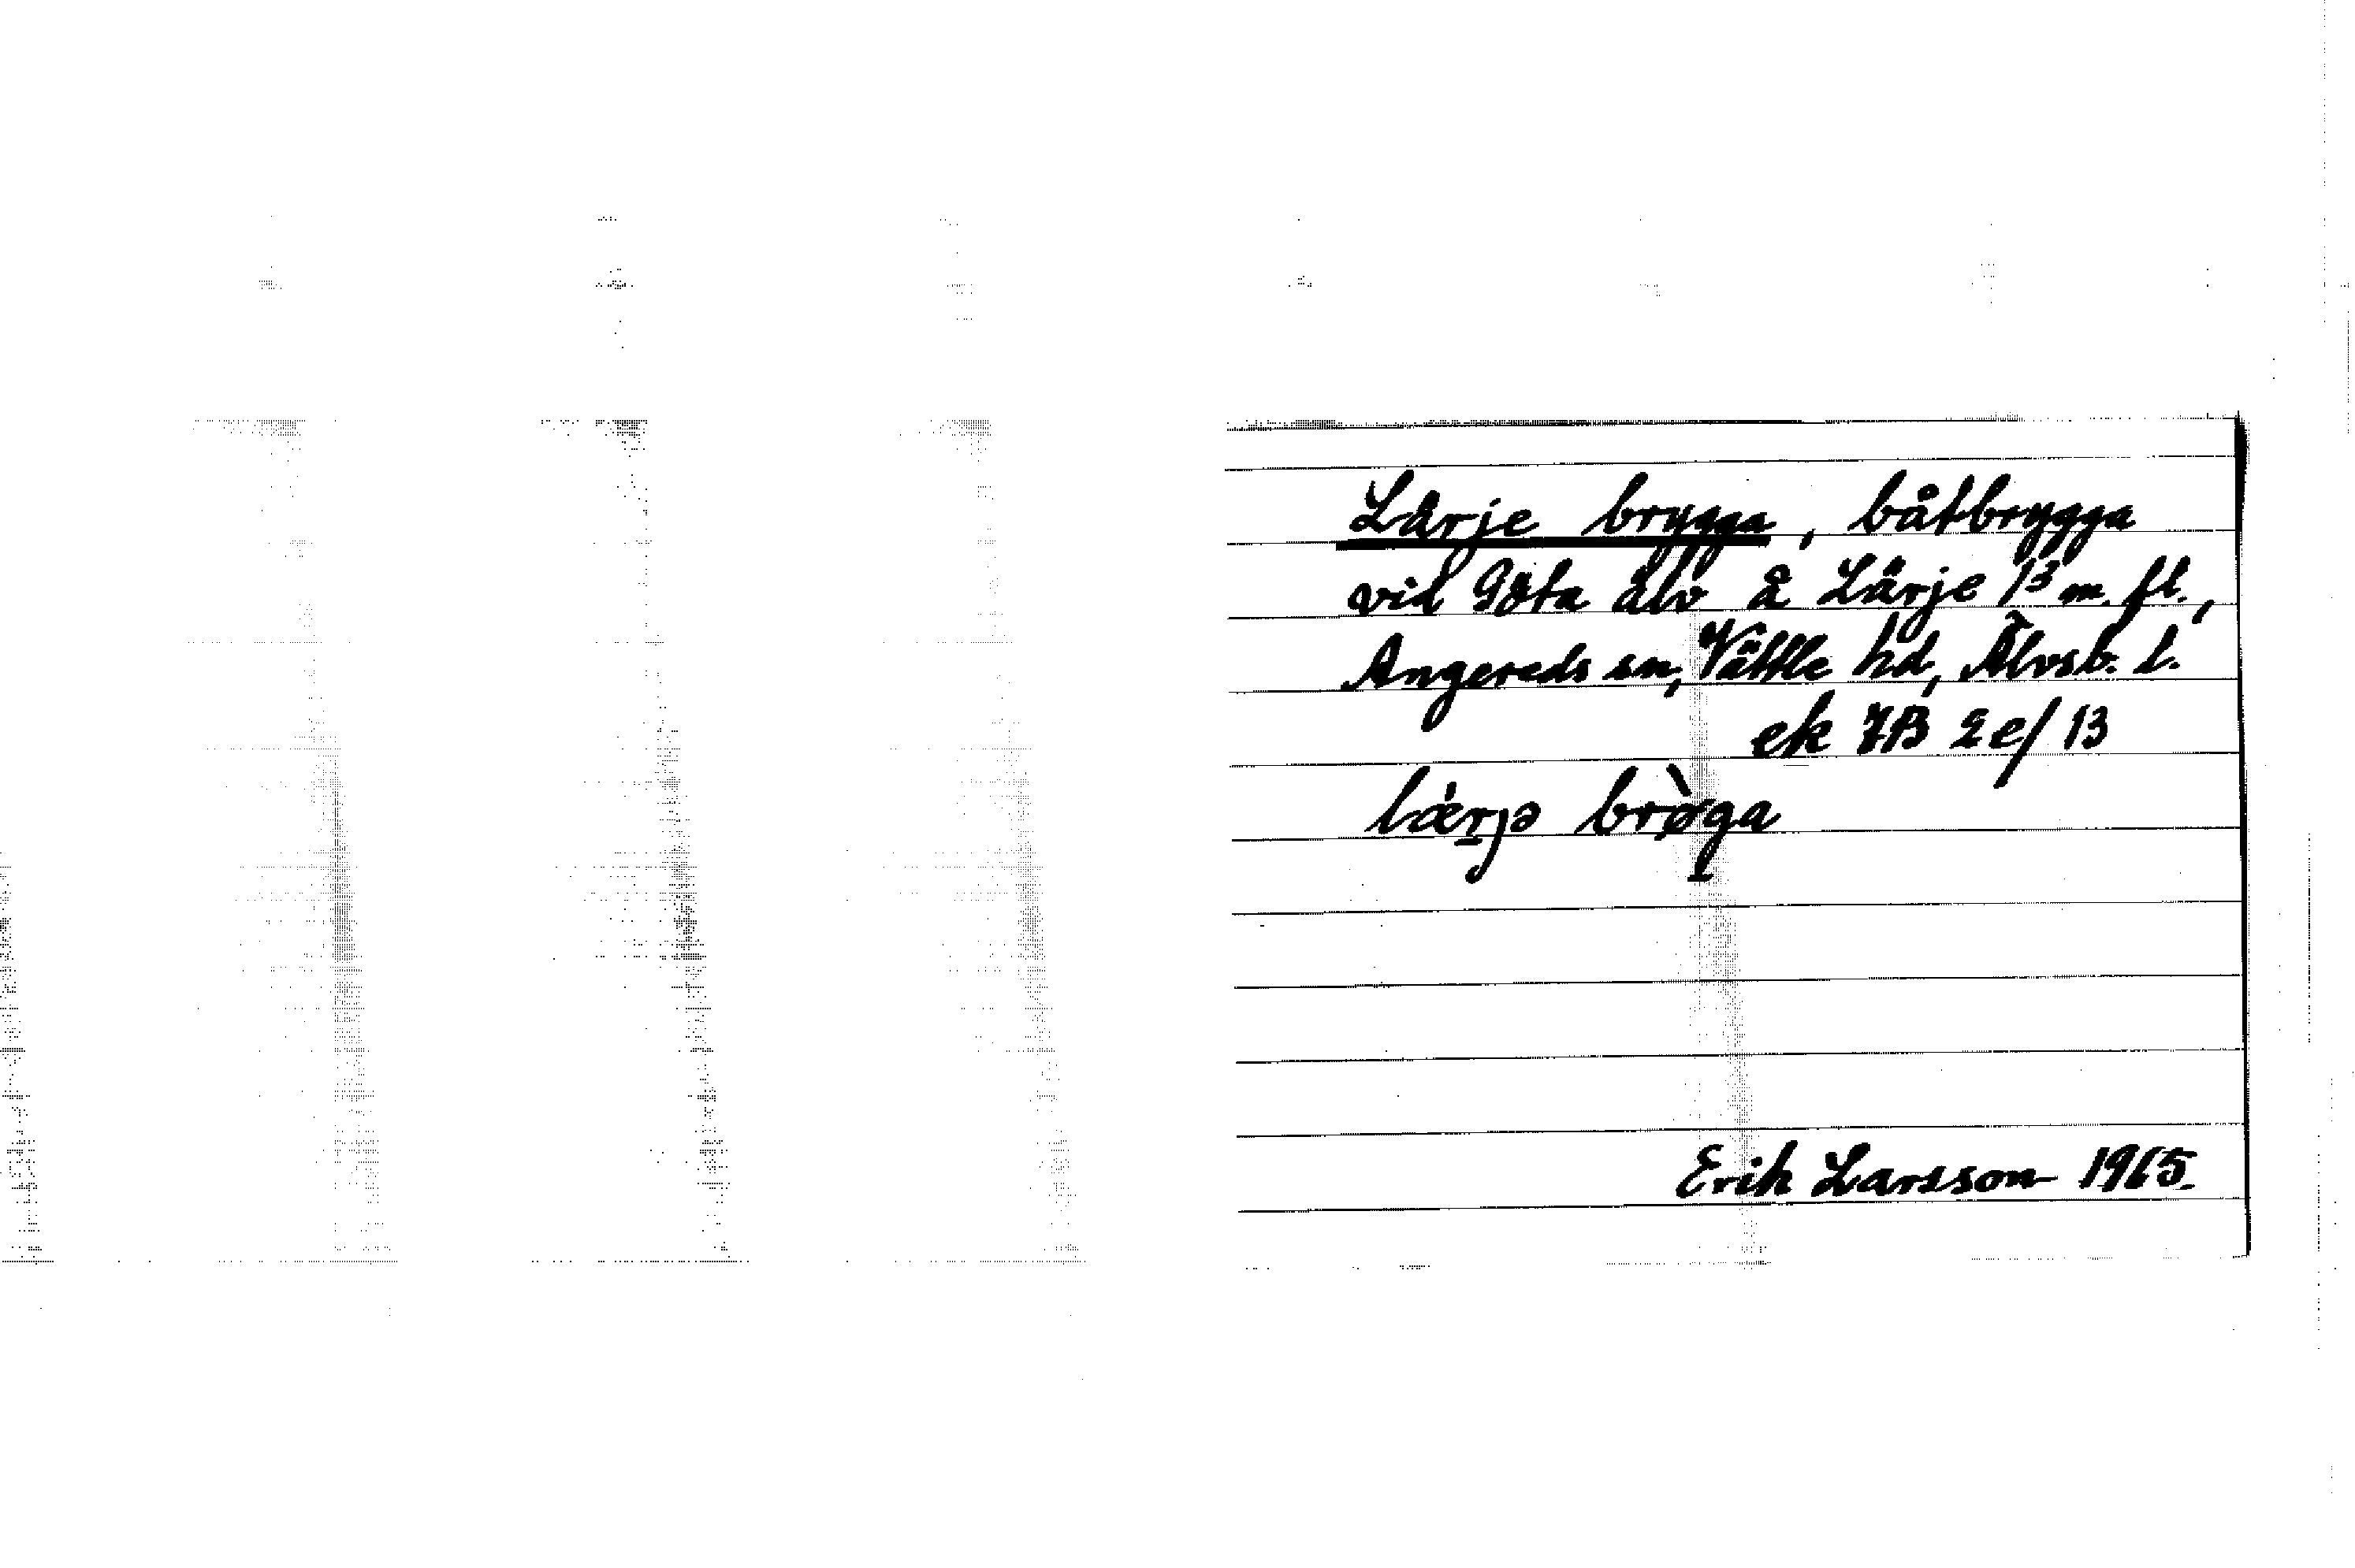 Lärje brygga, båtbrygga
vid Göta älv å Lärje 13 m. fl.,
Angereds sn, Vättle hd, Älvsb. l.
ek 7B 2e/13
lærjə brø̀ga
Erik Larsson 1965.